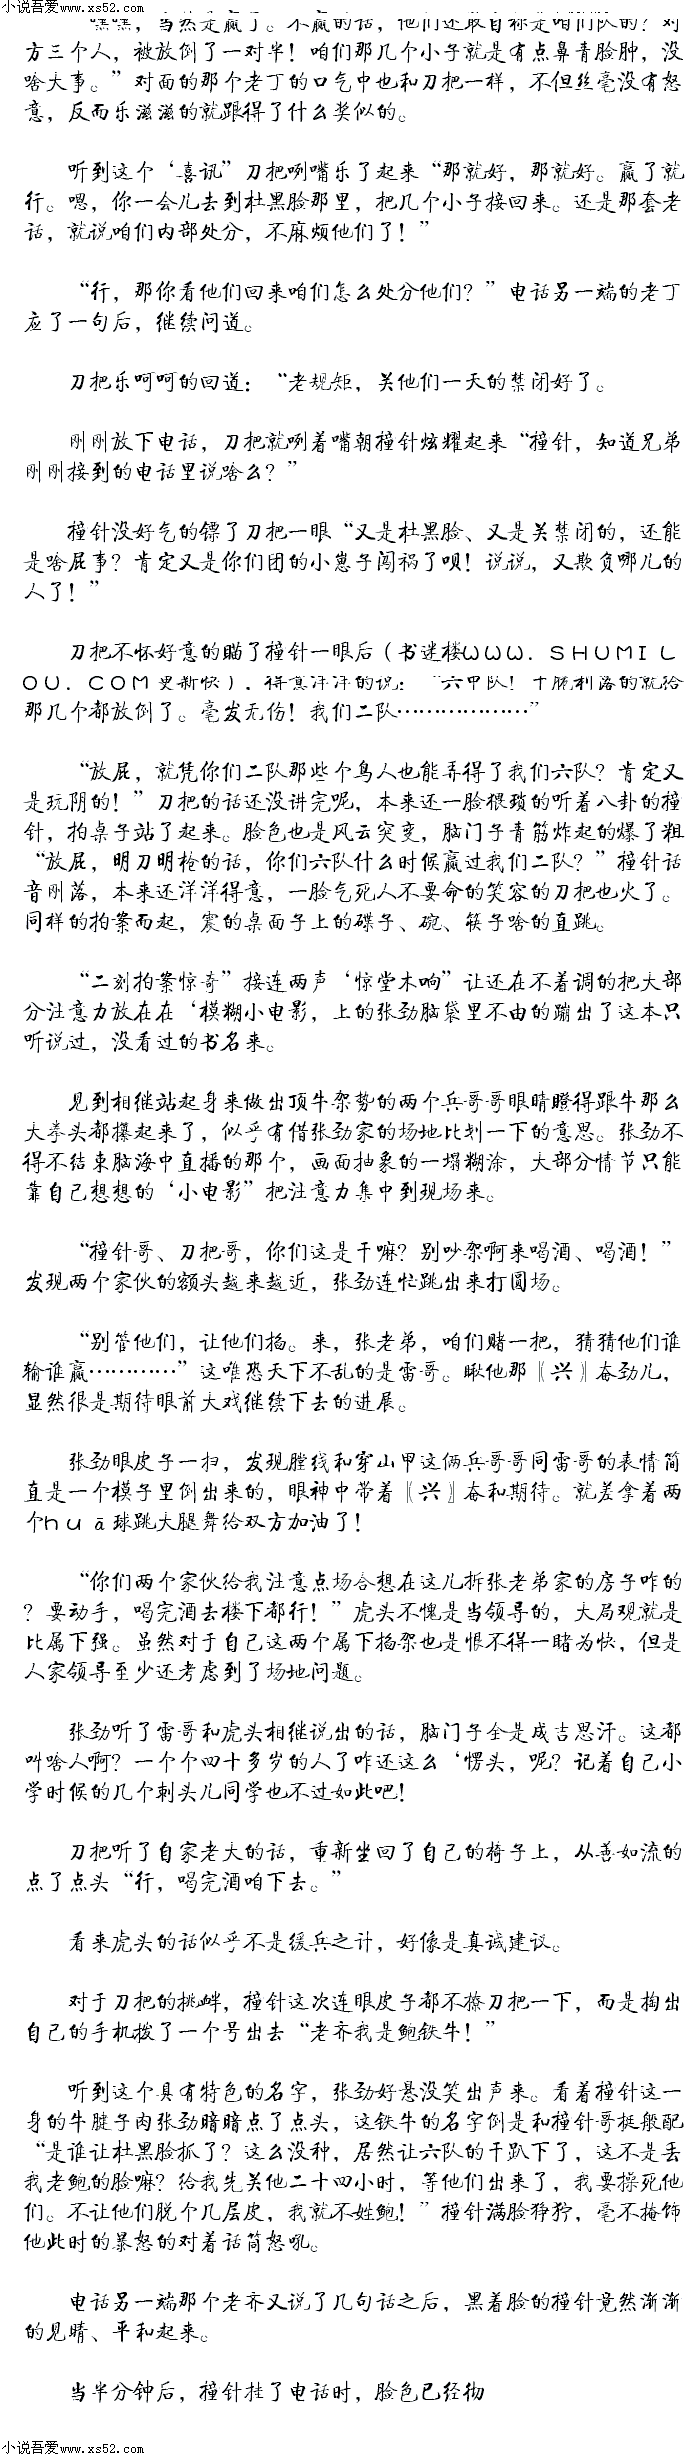 小说吾爱www.xs52.com
“嘿嘿，当然是赢了。不赢的话，他们还敢自称是咱们队的？对
方三个人，被放倒了一对半！咱们那几个小子就是有点鼻青脸肿，没
啥大事。”对面的那个老丁的口气中也和刀把一样，不但丝毫没有怒
意，反而乐滋滋的就跟得了什么奖似的。
听到这个‘喜讯”刀把咧嘴乐了起来“那就好，那就好。赢了就
行。嗯，你一会儿去到杜黑脸那里，把几个小子接回来。还是那套老
话，就说咱们内部处分，不麻烦他们了！”
“行，那你看他们回来咱们怎么处分他们？”电话另一端的老丁
应了一句后，继续问道。
刀把乐呵呵的回道：“老规矩，关他们一天的禁闭好了。
刚刚放下电话，刀把就咧着嘴朝撞针炫耀起来“撞针，知道兄弟
刚刚接到的电话里说啥么？”
撞针没好气的镖了刀把一眼“又是杜黑脸、又是关禁闭的，还能
是啥屁事？肯定又是你们团的小崽子闯祸了呗！说说，又欺负哪儿的
人了！”
刀把不怀好意的瞄了撞针一眼后（书迷楼WWW．SHUMIL
OU．COM更新快），得意洋洋的说：“六甲队！干脆利落的就给
那几个都放倒了。毫发无伤！我们二队………………”
“放屁，就凭你们二队那些个鸟人也能弄得了我们六队？肯定又
是玩阴的！”刀把的话还没讲完呢，本来还一脸猥琐的听着八卦的撞
针，拍桌子站了起来。脸色也是风云突变，脑门子青筋炸起的爆了粗
“放屁，明刀明枪的话，你们六队什么时候赢过我们二队？”撞针话
音刚落，本来还洋洋得意，一脸气死人不要命的笑容的刀把也火了。
同样的拍案而起，震的桌面子上的碟子、碗、筷子啥的直跳。
“二刻拍案惊奇”接连两声‘惊堂木响”让还在不着调的把大部
分注意力放在在‘模糊小电影，上的张劲脑袋里不由的蹦出了这本只
听说过，没看过的书名来。
见到相继站起身来做出顶牛架势的两个兵哥哥眼睛瞪得跟牛那么
大拳头都攥起来了，似乎有借张劲家的场地比划一下的意思。张劲不
得不结束脑海中直播的那个，画面抽象的一塌糊涂，大部分情节只能
靠自己想想的‘小电影”把注意力集中到现场来。
“撞针哥、刀把哥，你们这是干嘛？别吵架啊来喝酒、喝酒！”
发现两个家伙的额头越来越近，张劲连忙跳出来打圆场。
“别管他们，让他们掐。来，张老弟，咱们赌一把，猜猜他们谁
输谁赢…………”这唯恐天下不乱的是雷哥。瞅他那〖兴〗奋劲儿，
显然很是期待眼前大戏继续下去的进展。
张劲眼皮子一扫，发现膛线和穿山甲这俩兵哥哥同雷哥的表情简
直是一个模子里倒出来的，眼神中带着〖兴〗奋和期待。就差拿着两
个huā球跳大腿舞给双方加油了！
“你们两个家伙给我注意点场合想在这儿拆张老弟家的房子咋的
？要动手，喝完酒去楼下都行！”虎头不愧是当领导的，大局观就是
比属下强。虽然对于自己这两个属下掐架也是恨不得一睹为快，但是
人家领导至少还考虑到了场地问题。
张劲听了雷哥和虎头相继说出的话，脑门子全是成吉思汗。这都
叫啥人啊？一个个四十多岁的人了咋还这么‘愣头，呢？记着自己小
学时候的几个刺头儿同学也不过如此吧！
刀把听了自家老大的话，重新坐回了自己的椅子上，从善如流的
点了点头“行，喝完酒咱下去。”
看来虎头的话似乎不是缓兵之计，好像是真诚建议。
对于刀把的挑衅，撞针这次连眼皮子都不撩刀把一下，而是掏出
自己的手机拨了一个号出去“老齐我是鲍铁牛！”
听到这个具有特色的名字，张劲好悬没笑出声来。看着撞针这一
身的牛腱子肉张劲暗暗点了点头，这铁牛的名字倒是和撞针哥挺般配
“是谁让杜黑脸抓了？这么没种，居然让六队的干趴下了，这不是丢
我老鲍的脸嘛？给我先关他二十四小时，等他们出来了，我要操死他
们。不让他们脱个几层皮，我就不姓鲍！”撞针满脸狰狞，毫不掩饰
他此时的暴怒的对着话筒怒吼。
电话另一端那个老齐又说了几句话之后，黑着脸的撞针竟然渐渐
的见晴、平和起来。
当半分钟后，撞针挂了电话时，脸色已经彻
小说吾爱www.xs52.com